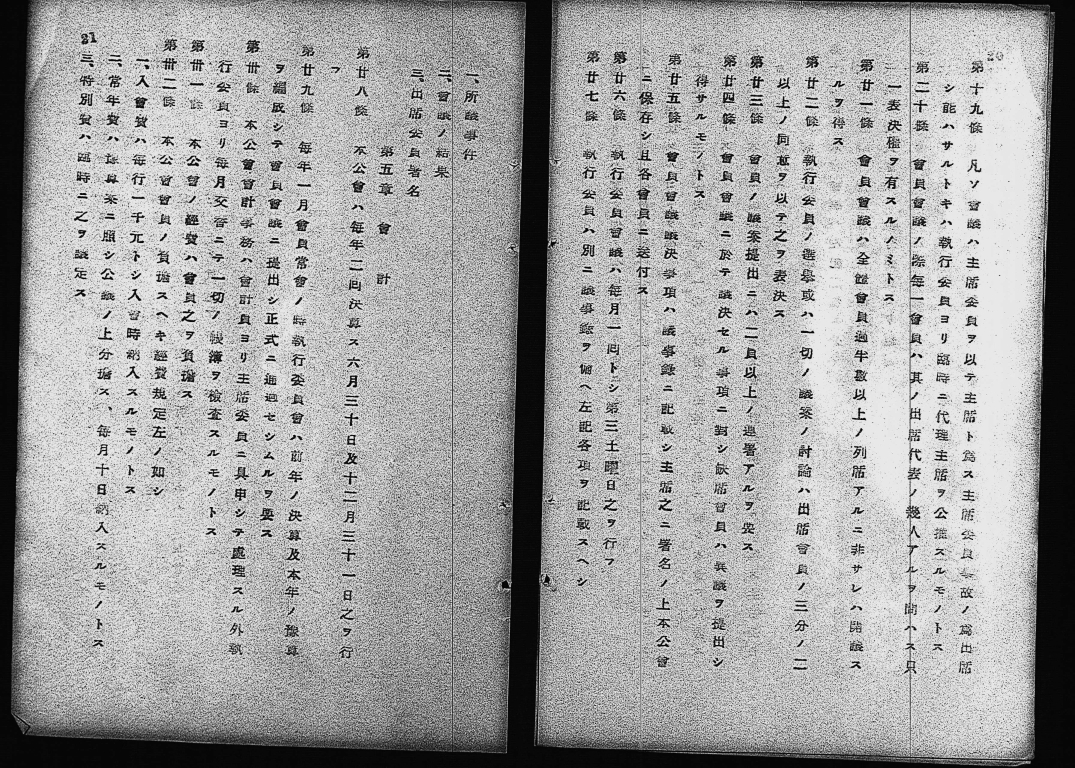 20
第十九條 凡ソ會議ハ主席委員ヲ以テ主席ト爲ス主席委員事故ノ爲出席
シ能ハサルトキハ執行委員ヨリ臨時ニ代理主席ヲ公推スルモノトス
第二十條 會員會議ノ際每一會員ハ其ノ出席代表ノ幾人アルヲ問ハス只
一表決權ヲ有スルノミトス
第廿一條 會員會議ハ全體會員過半數以上ノ列席アルニ非サレハ開議ス
ルヲ得ス
第廿二條 執行委員ノ選擧或ハ一切ノ議案ノ討論ハ出席會員ノ三分ノ二
以上ノ同意ヲ以テ之ヲ表決ス
第廿三條 會員ノ議案提出ニハ二員以上ノ連署アルヲ要ス
第廿四條 會員會議ニ於テ議決セル事項ニ對シ缺席會員ハ異議ヲ提出シ
得サルモノトス
第廿五條 會員會議議決事項ハ議事錄ニ記載シ主席之ニ署名ノ上本公會
ニ保存シ且各會員ニ送付ス
第廿六條 執行委員會議ハ每月一回トシ第三土曜日之ヲ行フ
第廿七條 執行委員ハ別ニ議事錄ヲ備ヘ左記各項ヲ記載スヘシ
21
一、所議事件
二、會議ノ結果
三、出席委員署名
第五章 會計
第廿八條 本公會ハ每年二回決算ス六月三十日及十二月三十一日之ヲ行
フ
第廿九條 每年一月會員常會ノ時執行委員會ハ前年ノ決算及本年ノ豫算
ヲ編成シテ會員會議ニ提出シ正式ニ通過セシムルヲ要ス
第卅條 本公會會計事務ハ會計員ヨリ主席委員ニ具申シテ處理スル外執
行委員ヨリ每月交替ニテ一切ノ帳簿ヲ檢査スルモノトス
第卅一條 本公會ノ經費ハ會員之ヲ負擔ス
第卅二條 本公會會員ノ負擔スヘキ經費規定左ノ如シ
一、入會費ハ每行一千元トシ入會時納入スルモノトス
二、常年費ハ豫算案ニ照シ公議ノ上分擔ス、每月十日納入スルモノトス
三、特別費ハ臨時ニ之ヲ議定ス